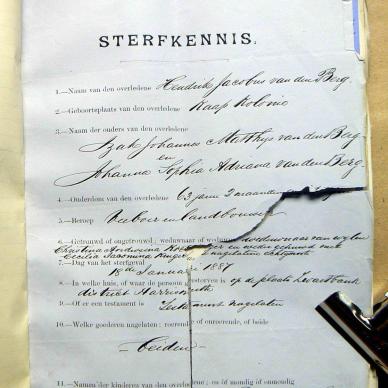 STERFKENNIS.
1.—Naam van den overledene Hendrik Jacobus van den Berg
2.—Geboortsplaats van den overledene Kaap Kolonie
3.—Naam der ouders van den overledene
Izak Johannes Matthys van den Berg
en
Johanna Sophia Adriana van den Berg
4.—Ouderdom van den overledene 63 jaar 2 maanden
5.—Beroep Veeboer en landbouwer
6.—Getrouwd of ongetrouwd; weduwnaar of weduwe weduwnaar van wylen
Christina
Cecilia Jacomina nagelaten echtgenote
7.—Dag van het sterfgeval
18de Januari 1887
8.—In welke huis, of waar de persoon gestorven is op de plaats Zwartbank
district
9.—Of er een testament is Testament nagelaten
10.—Welke goederen nagelaten; roerende of onroerende, of beide
Beiden
11.—Namen der kinderen van den overledene; en óf mondig óf onmondig